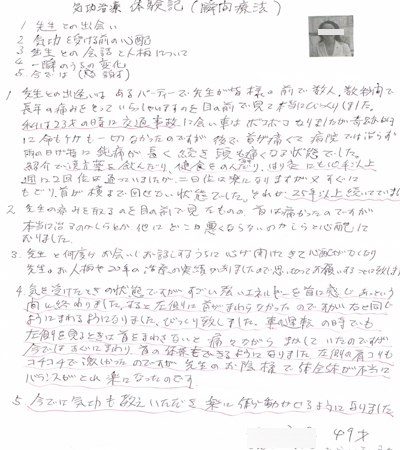 気功治療 体験記(瞬間療法)
1 先生との出会い
2 気功を受ける前の心配
3 先生との会話と人柄について
4 一瞬のうちの変化
5 今では
1 先生との出逢いは あるパーティーで先生が皆様の前で数人、数秒間で
長年の痛みをとっていらっしゃいますのを目の前で見て本当にびっくりしました。
私は23才の時に交通事故に会い車はボコボコなりましたが奇跡的
に命もケガも一切なかったのですが 後で首が痛くて病院では治らず
雨の日が毎に鈍痛が長く続き頭も痛くなる状態でした。
紹介で漢方薬を飲んだり健食をのんだり、はり灸にも10年以上
週に2回位は通っていましたが一二日位は楽になりますが又すぐに
もどり、首が横まで回せない状態でした。それが25年以上続いていま
2 先生の痛みを取るのを目の前で見たものの、首は痛かったのですが
本当に治るのかしらとか他にどこか悪くならないのかしらと心配して
おりました。
3 先生と何度かお会いしお話しするうちに心が開けてきて心配がなくなり
先生のお人柄と20年の治療の実績がありましたので思い切ってお願いすることに致しま
4 気を受けたときの状態ですが、すごい強いエネルギーを首に感じあっという
間に終わりました。すると左側に首がまわらなかったのですが右と同じ
ようにまわるようになりました。びっくり致しました。車の運転の時でも
左側を見るときは首をまわさないと痛くてガマンしていたのですが
今ではすぐにまわり、首の体操もできるようになりました。左側の肩コリも
コチコチで激しかったのですが先生のお陰様で体全体が本当に
バランスがとれ楽になったのです。
5 今では気功も教えていただき楽に体が動かせるようになりました。
49才